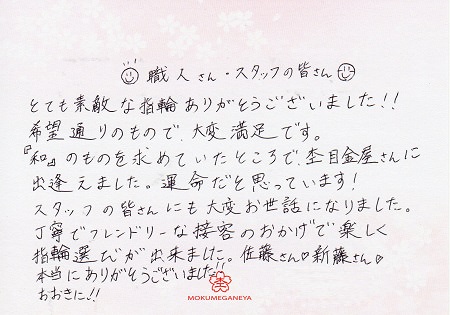 ☺ 職人さん・スタッフの皆さん ☺
とても素敵な指輪ありがとうございました!!
希望通りのもので、大変満足です。
『和』のものを求めていたところで、杢目金屋さんに
出逢えました。運命だと思っています!
スタッフの皆さんにも大変お世話になりました。
丁寧でフレンドリーな接客のおかげで楽しく
指輪選びが出来ました。佐藤さん♡新藤さん♡
本当にありがとうございました!!
おおきに!!
MOKUMEGANEYA